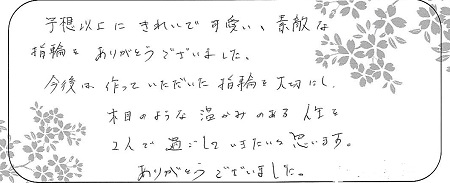 予想以上にきれいで可愛い、素敵な
指輪をありがとうございました。
今後は、作っていただいた指輪を大切にし、
木目のような温かみのある人生を
2人で過ごしていきたいと思います。
ありがとうございました。